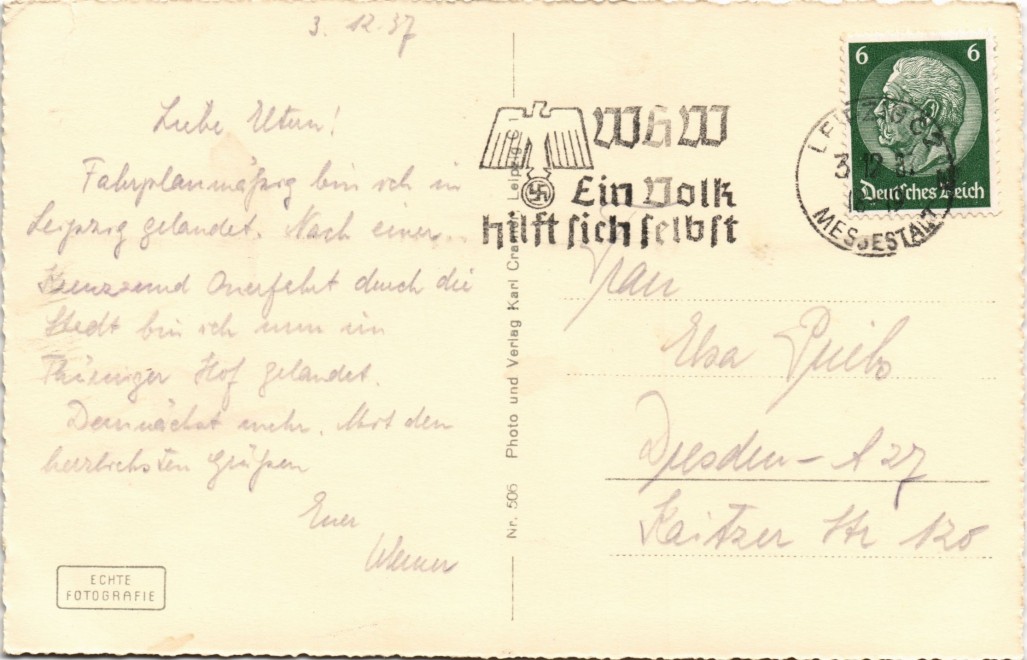 3. 12. 37
Liebe Eltern!
Fahrplanmäßig bin ich in
Leipzig gelandet. Nach einer
Kreuz und Querfahrt durch die
Stadt bin ich nun im
Thüringer Hof gelandet.
Demnächst mehr. Mit den
herzlichsten Grüßen
Euer
Werner
ECHTE
FOTOGRAFIE
Nr. 506 Photo und Verlag Karl Leipzig C 1
WHW
Ein Volk
hilft sich selbst
LEIPZIG C 2
3.12.37
MESSESTADT
6 6
Deutsches Reich
Frau
Elsa
Dresden-A 27
Kaitzer Str 120